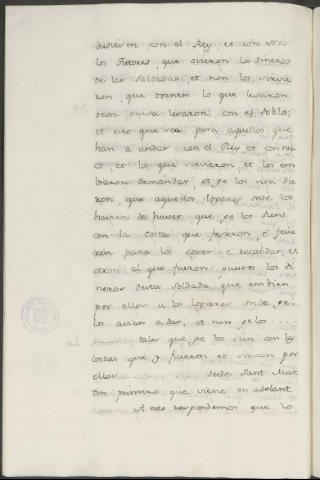 duviesen con el Rey et con nos
los Tutores, que ovieron los dineros
de las Soldadas, et non los sirvie
ron, que tornen lo que levaron
desta guisa levaron, con el doblo;
et esto que sea para aquellos que
han a andar con el Rey et connus
co, et los que sirvieron et los em
biaron demandar, et ge los non die
ron, que aquellos logares onde los
havien de haver que ge los den
con las costas que ficieron, e ficie
ren para los coger e recabdar, et
otrosi al que fueron puestos los di
neros desta soldada, que embien
por ellos a los logares onde ge
los avian a dar, et non ge los ....
tales que ge los den con las
costas que y ficieron et vinan por
ellos ... desde Sant Mar
tin primero que viene en adelant.
A esto respondemos que lo